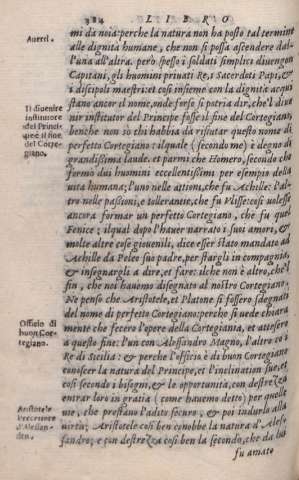 384 LIBRO
mi da noia: perche la natura non ha posto tal termine
Auert.
alle dignità humane, che non si possa ascendere dal-
l'una all'altra. però spesso i soldati simplici diuengon
Capitani, gli huomini priuati Re, i Sacerdoti Papi, &
i discipoli maestri: et cosi insieme con la dignità acqui
stano ancor il nome, onde forse si potria dir, che'l diue
Il diuenire
institutore
del Princi-
pe è il fine
del Corte-
giano.
nir institutor del Principe fosse il fine del Cortegiano,
benche non sò chi habbia da rifiutar questo nome di
perfetto Cortegiano: ilquale (secondo me) è degno di
grandissima laude. et parmi che Homero, secondo che
formò dui huomini eccellentissimi per esempio della
vita humana; l'uno nelle attioni, che fu Achille: l'al-
tro nelle passioni, e tollerantie, che fu Vlisse: così uolesse
ancora formar un perfetto Cortegiano, che fu quel
Fenice; ilqual dopo l'hauer narrato i suoi amori, &
molte altre cose giouenili, dice esser stato mandato ad
Achille da Peleo suo padre, per stargli in compagnia,
& insegnargli a dire, et fare: ilche non è altro, che'l
fin, che noi hauemo disegnato al nostro Cortegiano.
Ne penso che Aristotele, et Platone si fossero sdegnati
del nome di perfetto Cortegiano: perche si uede chiara
Officio di
buon Cor-
tegiano.
mente che fecero l'opere della Cortegiania, et attesero
a questo fine: l'un con Alessandro Magno, l'altro co i
Re di Sicilia: & perche l'officio è di buon Cortegiano
conoscer la natura del Principe, et l'inclination sue, et
così secondo i bisogni, & le opportunità, con destrezza
entrar loro in gratia (come hauemo detto) per quelle
vie, che prestano l'adito securo, & poi indurlo alla
Aristotele
Precettore
d'Alessan-
dro.
uirtù; Aristotele così ben conobbe la natura d'Ales-
sandro; e con destrezza così ben la secondò, che da lui
fu amato